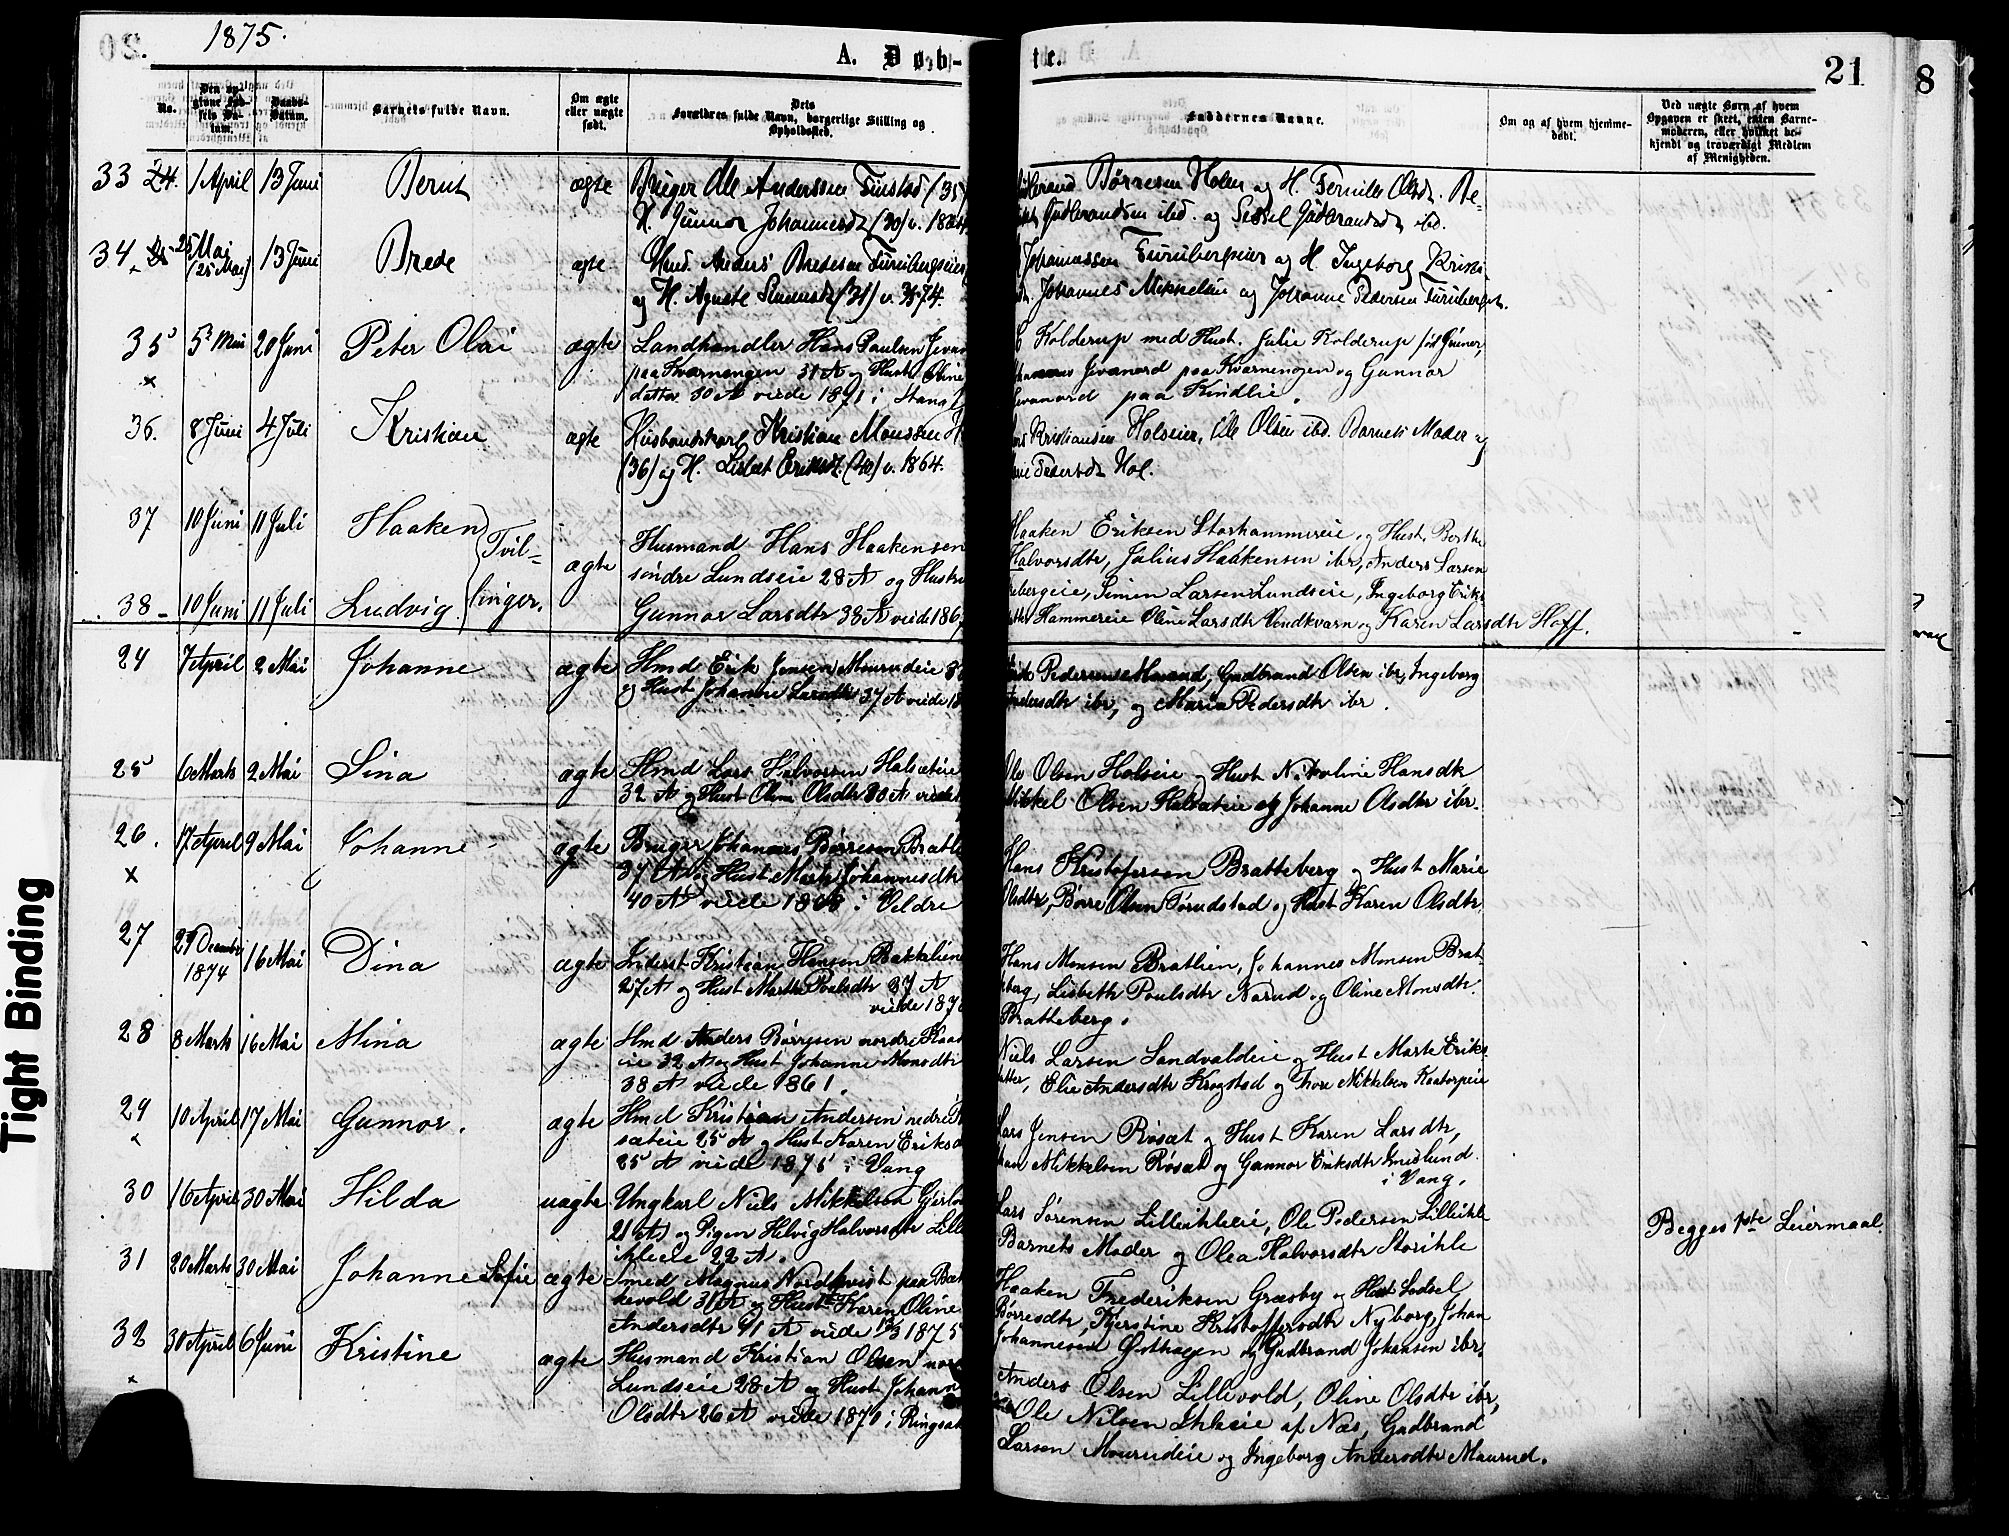 1875.
20
A. Døb-
te.
21
8
No.
Den opgivne Fødsels Datum.
Daabs-Datum.
Barnets fulde Navn.
Om ægte eller uægte født.
Dets Forældres fulde Navn, borgerlige Stilling og Opholdssted.
Faddernes Navne.
Om og af hvem hjemmedøbt.
Ved uægte Børn af hvem Opgaven er skeet, enten Barnemoderen, eller hvilket bekjendt og troværdigt Medlem af Menigheden.
33 24. 1 April 13 Juni Bernt ægte Bruger Ole Anderssen Finstad (35)
H. Gunnor Johannesdt (30) v.
Børresen Holen og H. Pernille Olsdt.
Gudbrandsen ibd. og Sessel Gudbrandsdt ibd.
34 25 Mai (25 Mai) 13 Juni Brede ægte Husmd. Anders Bredesen Furubergseie
og H. Agnete (31) v. 74.
Johannessen Furubergseie og H. Ingeborg
Johannes Mikkelsen og Johanne Pedersen
35 5 Mai 20 Juni Peter Olai ægte Landhandler Hans Paulsen
paa Kværnengen 31 A og Hustr Oline
datter 30 A viede 1871 i Stange
Kolderup med Hust. Julie Kolderup fød
Jevanord paa Kværnengen og Gunnor
Jevanord paa Kindlie.
36. 8 Juni 4 Juli Kristian ægte Husbondskarl Kristian Monssen
(36) og H. Lisbet Eriksdt. (40) v. 1864.
Kristiansen Holseier, Ole Olsen ibd. Barnets Moder og
Pedersdt Hol.
37 10 Juni 11 Juli Haaken Tvil-
38 10 Juni 11 Juli Ludvig linger.
ægte Husmand Hans Haakensen
søndre Lundseie 28 A og Hustr
Gunnor Larsdtr 33 A viede 186
Haaken Eriksen Storhammereie, og Hust. Berthe
Halvorsdtr, Julius Haakensen ibr, Anders Larsen
bergeie, Simen Larsen Lundseie, Ingeborg Eriks-
Hammereie Oline Larsdtr Vendkværn og Karen Larsdtr Hoff.
24 7 April 2 Mai Johanne ægte Hmd Erik Jensen Mourudeie
og Hust Johanne Larsdtr 37 A viede 18
Pedersen Maurud, Gudbrand Olsen ibr, Ingeborg
Andersdtr ibr, og Maria Pedersdtr ibr.
25 6 Marts 2 Mai Sina ægte Hmd Lars Halvorsen Halsæteie
32 A og Hust Oline Olsdtr 30 A viede
Ole Olsen Holseie og Hust Nikoline Hansdtr
Mikkel Olsen Halsæteie og Johanne Olsdtr ibr.
26. 17 April 9 Mai Johanne ægte Bruger Johannes Børresen Bratte
37 A og Hust Marte Johannesdtr
40 A viede 1868 i Veldre
Hans Kristofersen Bratteberg og Hust Marie
Olsdtr, Børre Olsen Torudstad og Hust Karen Olsdtr
27 29 Decembr 1874 16 Mai Dina ægte Inderst Kristian Hansen Bakkelien
27 A og Hust Marthe Poulsdtr 37 A
viede 187
Hans Monsen Brattlien, Johannes Monsen Brat-
berg, Lisbeth Poulsdtr Narud og Oline Monsdtr
Bratteberg.
28 8 Marts 16 Mai Mina ægte Hmd Anders Børresen nordre Kaat
eie 32 A og Hust Johanne Monsdtr
38 A viede 1861.
Niels Larsen Sandvoldeie og Hust Marte Eriks
datter, Elie Andersdtr Krogstad og Thore Mikkelsen Kaatorpeie
29 10 April 17 Mai Gunnor. ægte Hmd Kristian Andersen nedre
sæteie 25 A og Hust Karen Eriksd
25 A viede 1875 i Vang
Lars Jensen Røsæt og Hust Karen Larsdtr,
Mikkelsen Røsæt og Gunnor Eriksdtr Imislund
i Vang.
30 16 April 30 Mai Hilda uægte Ungkarl Niels Mikkelsen Gjerlu
21 A og Pigen Helvig Halvorsdtr Lille
ihleeie 22 A.
Lars Sørensen Lilleihleeie, Ole Pedersen Lilleihle
Barnets Moder og Olea Halvorsdtr Storihle
Begges 1ste Leiermaal.
31 20 Marts 30 Mai Johanne Sofie ægte Smed Magnus Nordkvist paa Bæk
kevold 31 A og Hustr Karen Oline
Andersdtr 41 A viede 1875
Haaken Frederiksen Græsby og Hust Sodsel
Børresdtr, Kjerstine Kristoffersdtr Nyborg, Johan
Johannesen Østhagen og Gudbrand Johansen ibr.
32 30 April 6 Juni Kristine ægte Husmand Kristian Olsen nor
Lundseie 28 A og Hust Johann
Olsdtr 26 A viede 1870 i Ringsak
Anders Olsen Lillevold, Oline Olsdtr ibr,
Ole Nilsen Ihleeie af Næs, Gudbrand
Larsen Mourudeie og Ingeborg Andersdtr Maurud.
Tight Binding